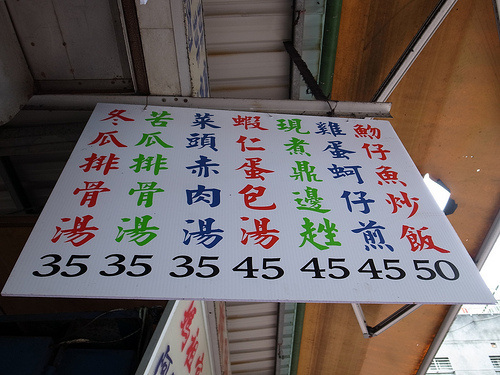 魩仔魚炒飯 50
雞蛋蚵仔煎 45
現煮鼎邊趖 45
蝦仁蛋包湯 45
菜頭赤肉湯 35
苦瓜排骨湯 35
冬瓜排骨湯 35